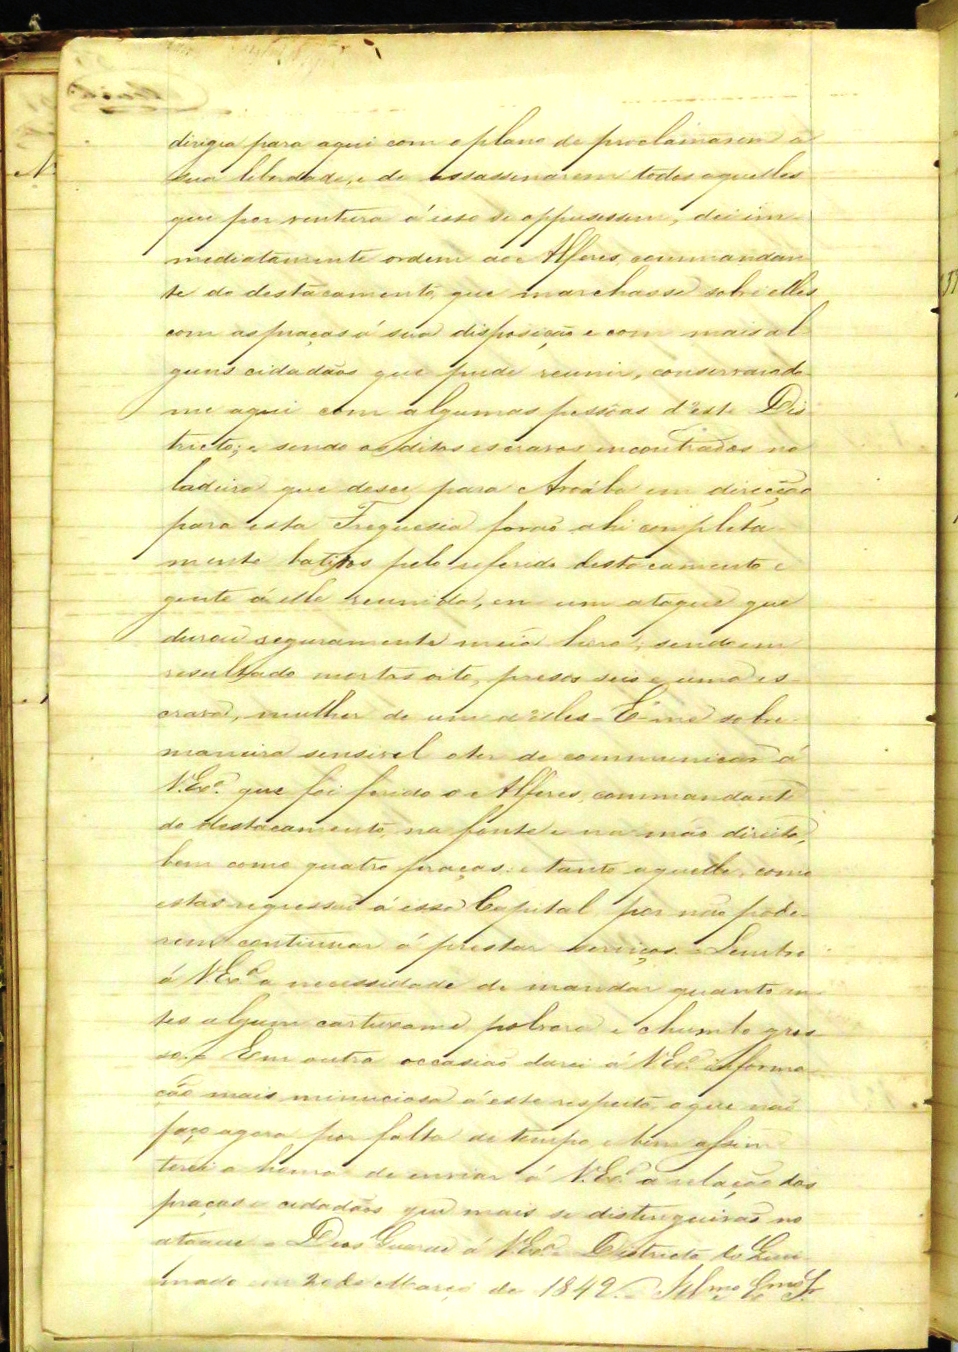 dirigia para aqui com o plano de proclamarem a
sua liberdade, e de assassinarem todos aquelles
que por ventura á isso se oppusessem, dei im-
mediatamente ordem ao Alferes commandan
te do destacamento que marchasse sobre elles
com as praças á sua disposição e com mais al
guns cidadãos que pude reunir, conservando
me aqui com algumas pessôas d'este Dis
tricto; e sendo os ditos escravos encontrados na
ladeira que desce para em direcção
para esta Freguesia forão ahi completa
mente batidos pelo referido destacamento e
gente á elle reunida, em um ataque que
durou seguramente meia hora, sendo em
resultado mortos oito, presos seis e uma es-
crava, mulher de um d'elles - É-me sobre-
maneira sensivel o ter de communicar á
V.Exª. que foi ferido o Alferes commandante
do destacamento, na fonte e na mão direita,
bem como quatro praças: e tanto aquelle, como
estas regressão á essa Capital por não pode-
rem continuar á prestar serviços. Lembro
á V.Exª a necessidade de mandar quanto an-
tes algum cartuxame, polvora e chumbo gros-
so. - Em outra occasião darei á V.Exª. informa-
ção mais minuciosa á este respeito, o que não
faço agora por falta de tempo, e bem assim
terei a honra de enviar á V.Exª a relação das
praças e cidadãos que mais se distinguirão no
ataque - Deos Guarde á V.Exª. Districto do Quei
mado em 20 de Março de 1849. - Illmo Exmo Sr.